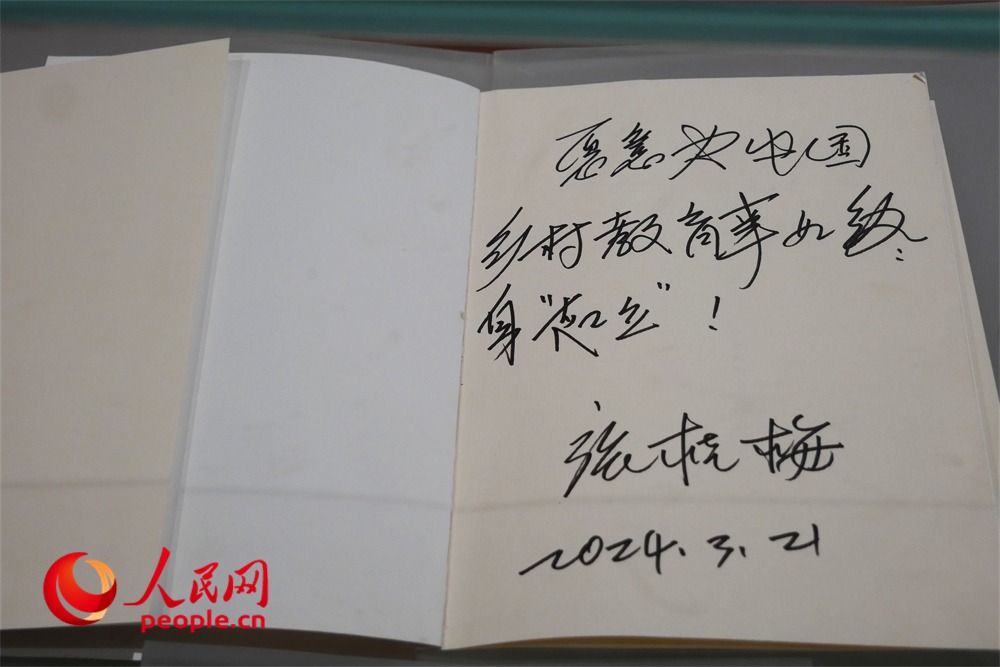 愿意为中国
乡村教育事业终
身“”！
张桂梅
2024.3.21
人民网
people.cn